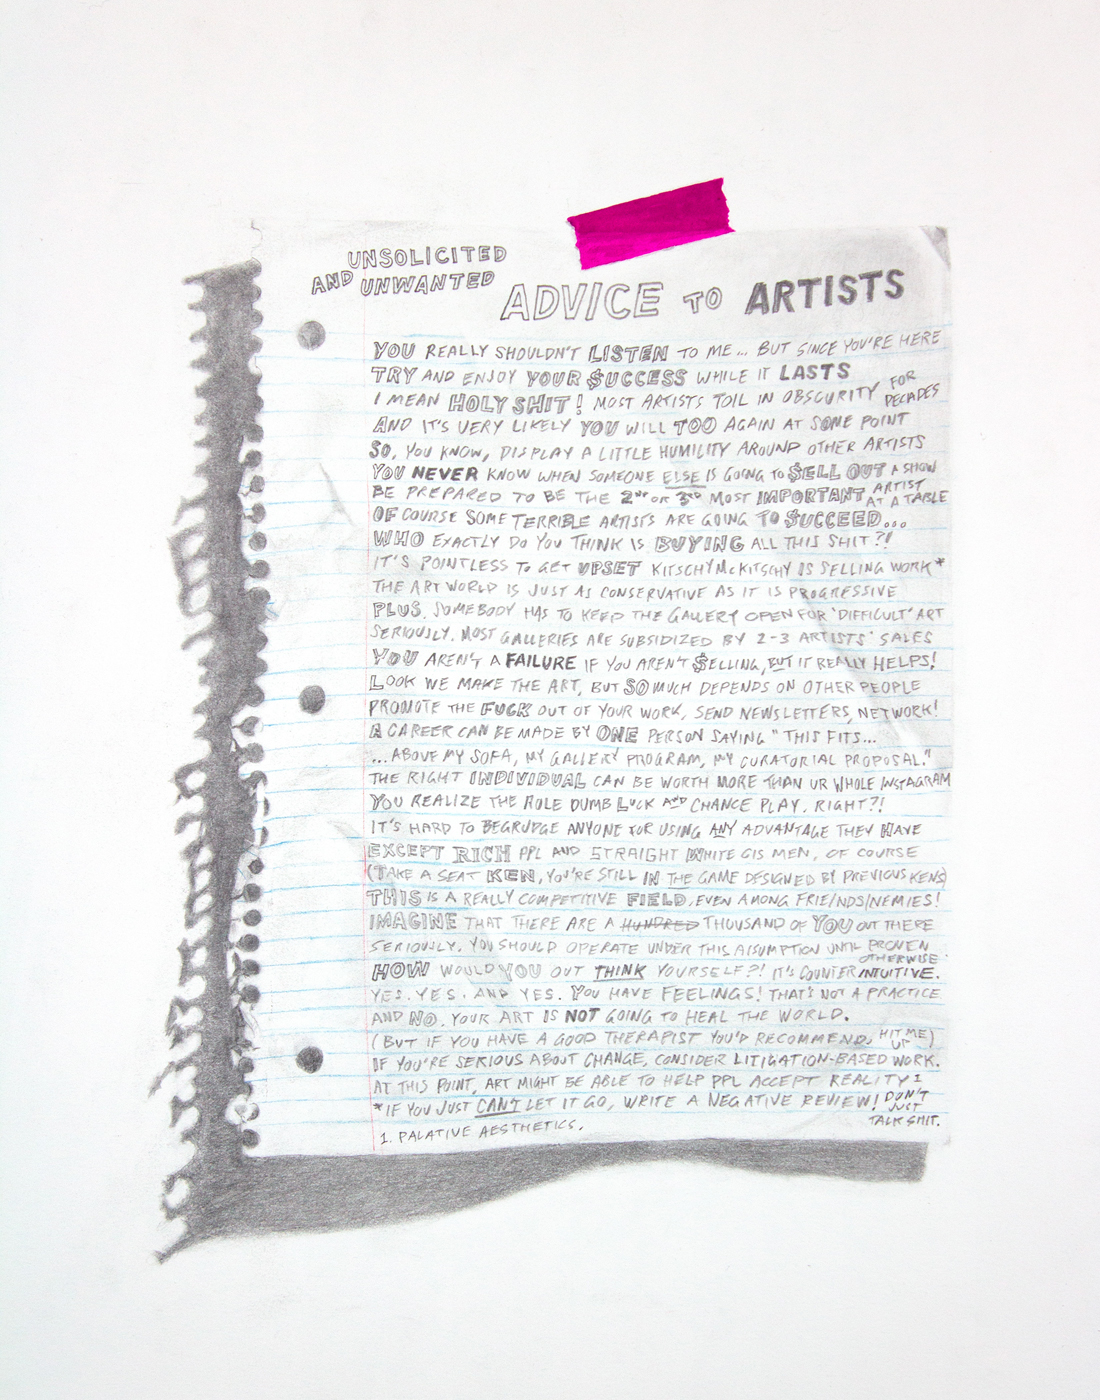 UNSOLICITED
AND UNWANTED
ADVICE TO ARTISTS
YOU REALLY SHOULDN'T LISTEN TO ME... BUT SINCE YOU'RE HERE
TRY AND ENJOY YOUR $UCCESS WHILE IT LASTS
I MEAN HOLY SHIT! MOST ARTISTS TOIL IN OBSCURITY FOR DECADES
AND IT'S VERY LIKELY YOU WILL TOO AGAIN AT SOME POINT
SO, YOU KNOW, DISPLAY A LITTLE HUMILITY AROUND OTHER ARTISTS
YOU NEVER KNOW WHEN SOMEONE ELSE IS GOING TO $ELL OUT A SHOW
BE PREPARED TO BE THE 2ND OR 3RD MOST IMPORTANT ARTIST AT A TABLE
OF COURSE SOME TERRIBLE ARTISTS ARE GOING TO $UCCEED...
WHO EXACTLY DO YOU THINK IS BUYING ALL THIS SHIT?!
IT'S POINTLESS TO GET UPSET KITSCHY McKITSCHY IS SELLING WORK*
THE ART WORLD IS JUST AS CONSERVATIVE AS IT IS PROGRESSIVE
PLUS, SOMEBODY HAS TO KEEP THE GALLERY OPEN FOR 'DIFFICULT' ART
SERIOUSLY, MOST GALLERIES ARE SUBSIDIZED BY 2-3 ARTISTS' SALES
YOU AREN'T A FAILURE IF YOU AREN'T $ELLING, BUT IT REALLY HELPS!
LOOK WE MAKE THE ART, BUT SO MUCH DEPENDS ON OTHER PEOPLE
PROMOTE THE FUCK OUT OF YOUR WORK, SEND NEWSLETTERS, NETWORK!
A CAREER CAN BE MADE BY ONE PERSON SAYING "THIS FITS...
...ABOVE MY SOFA, MY GALLERY PROGRAM, MY CURATORIAL PROPOSAL."
THE RIGHT INDIVIDUAL CAN BE WORTH MORE THAN UR WHOLE INSTAGRAM
YOU REALIZE THE ROLE DUMB LUCK AND CHANCE PLAY, RIGHT?!
IT'S HARD TO BEGRUDGE ANYONE FOR USING ANY ADVANTAGE THEY HAVE
EXCEPT RICH PPL AND STRAIGHT WHITE CIS MEN, OF COURSE
(TAKE A SEAT KEN, YOU'RE STILL IN THE GAME DESIGNED BY PREVIOUS KENS)
THIS IS A REALLY COMPETITIVE FIELD, EVEN AMONG FRIE/NDS/NEMIES!
IMAGINE THAT THERE ARE A HUNDRED THOUSAND OF YOU OUT THERE
SERIOUSLY, YOU SHOULD OPERATE UNDER THIS ASSUMPTION UNTIL PROVEN OTHERWISE
HOW WOULD YOU OUT THINK YOURSELF?! IT'S COUNTERINTUITIVE.
YES, YES, AND YES. YOU HAVE FEELINGS! THAT'S NOT A PRACTICE
AND NO, YOUR ART IS NOT GOING TO HEAL THE WORLD.
(BUT IF YOU HAVE A GOOD THERAPIST YOU'D RECOMMEND, HIT ME UP)
IF YOU'RE SERIOUS ABOUT CHANGE, CONSIDER LITIGATION-BASED WORK.
AT THIS POINT, ART MIGHT BE ABLE TO HELP PPL ACCEPT REALITY1
*IF YOU JUST CAN'T LET IT GO, WRITE A NEGATIVE REVIEW! DON'T JUST TALK SHIT.
1. PALATIVE AESTHETICS.